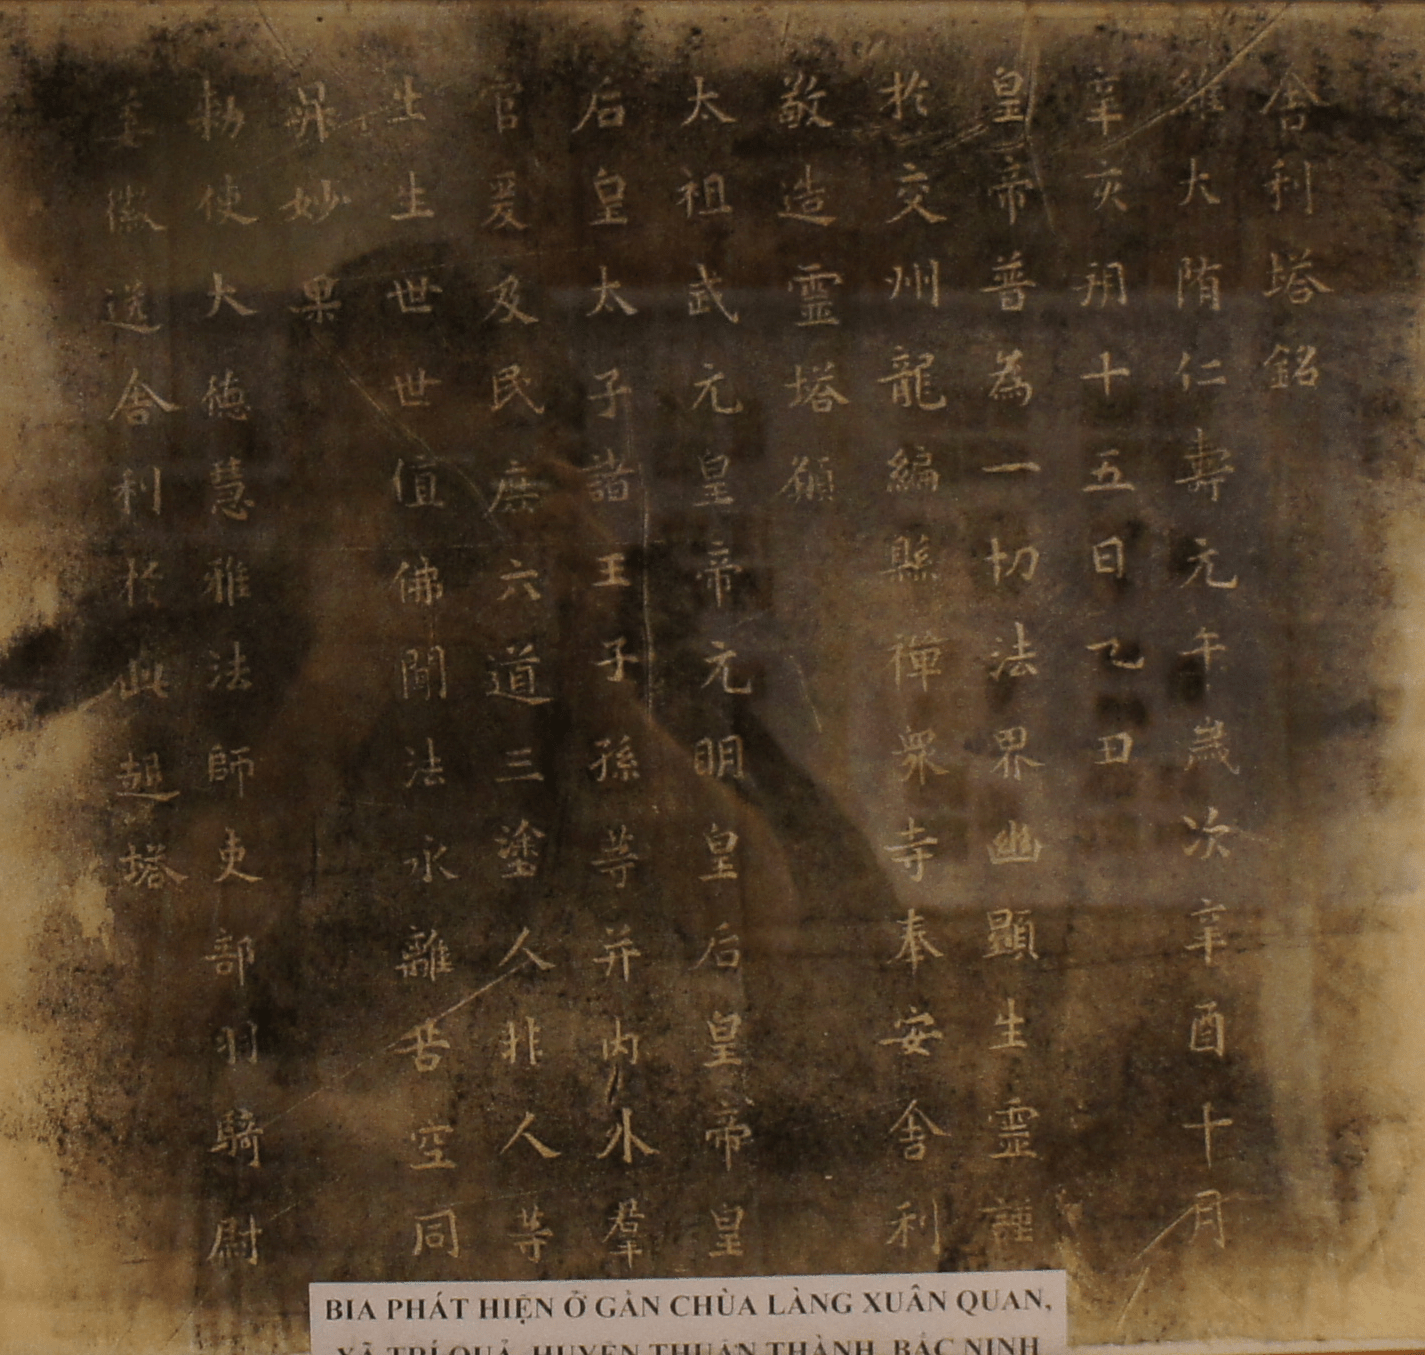 舍利塔銘
維大隋仁壽元年歲次辛酉十月
辛亥朔十五日乙丑
皇帝普為一切法界幽顯生靈謹
於交州龍編縣禪衆寺奉安舍利
敬造靈塔願
太祖武元皇帝元明皇后皇帝皇
后皇太子諸王子孫等并内外羣
官爰及民庶六道三塗人非人等
生生世世值佛聞法永離苦空同
昇妙果
勑使大德慧雅法師吏部羽騎尉
姜徽送舍利於此起塔
BIA PHÁT HIỆN Ở GẦN CHÙA LÀNG XUÂN QUAN,
XÃ TRÍ QUẢ, HUYỆN THUẬN THÀNH, BẮC NINH